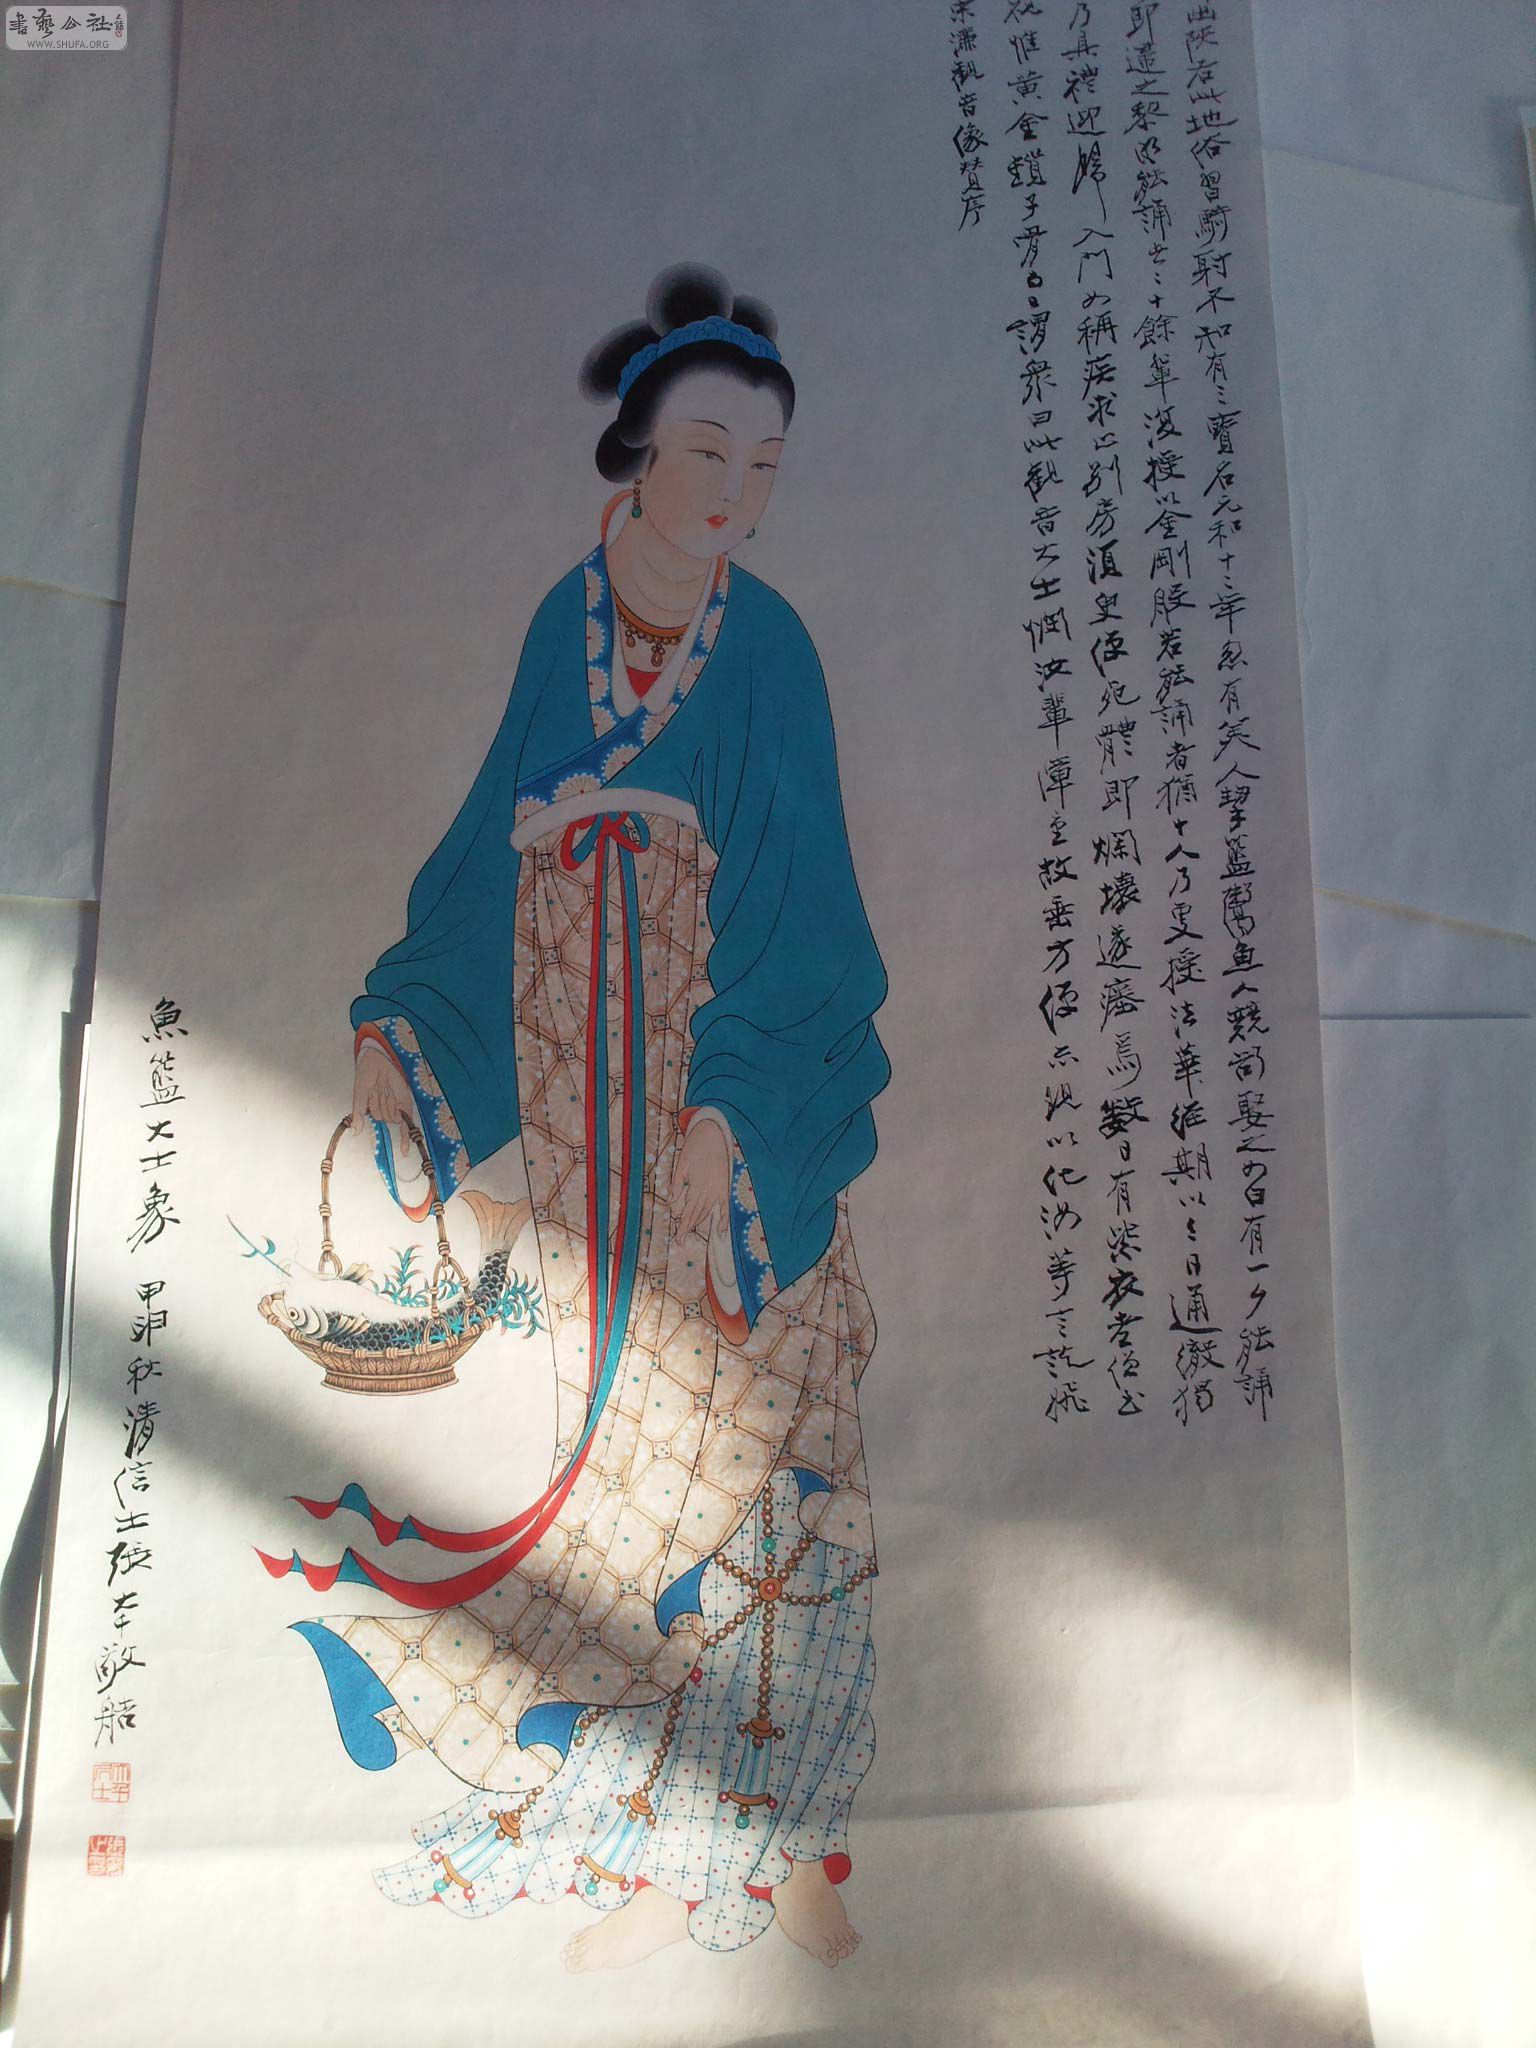 書藝公社
WWW.SHUFA.ORG
陝右此地俗習騎射不知有三寶名元和十二年忽有美人挈籃鬻魚人競欲娶之女曰有一夕能誦
即遵之黎明能誦者二十餘輩復授以金剛般若能誦者猶十人乃更授法華經期以三日通徹獨
乃具禮迎歸入門女稱疾求止別房須臾便死體即爛壞遂瘞焉數日有紫衣老僧至
視惟黃金鎖子骨爾謂眾曰此觀音大士憫汝輩障重故垂方便示現以化汝等言訖飛
宋濂觀音像贊序
魚籃大士象 甲卯秋清信士張大千敬